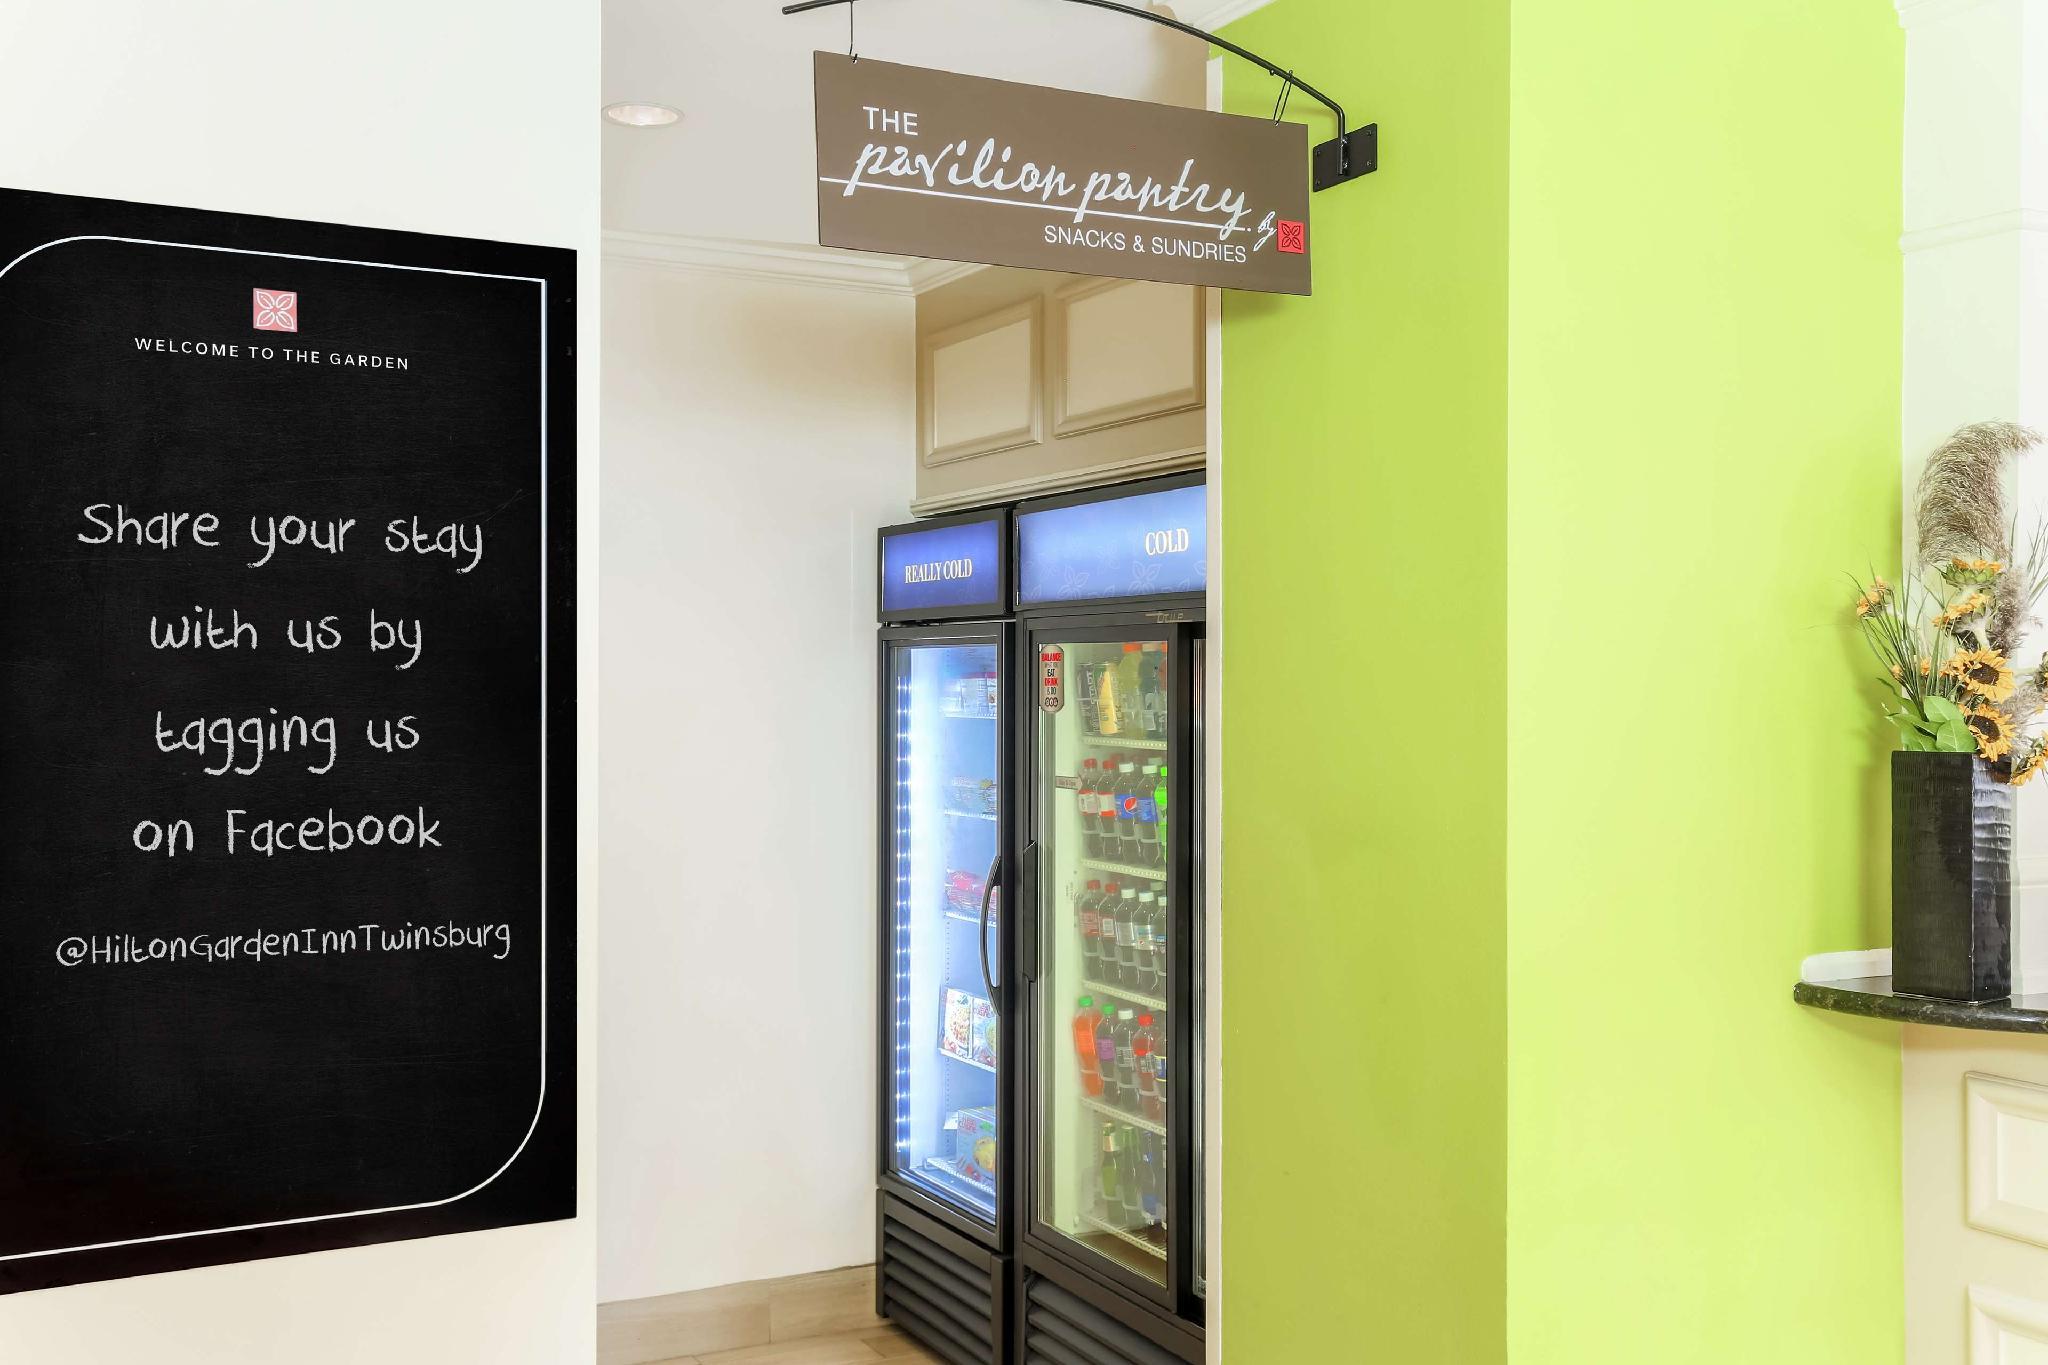 WELCOME TO THE GARDEN
Share your stay
with us by
tagging us
on Facebook
@HiltonGardenInnTwinsburg
THE
pavilion pantry.
by
SNACKS & SUNDRIES
REALLY COLD
COLD
true
BALANCE
EAT
DRINK
& DO